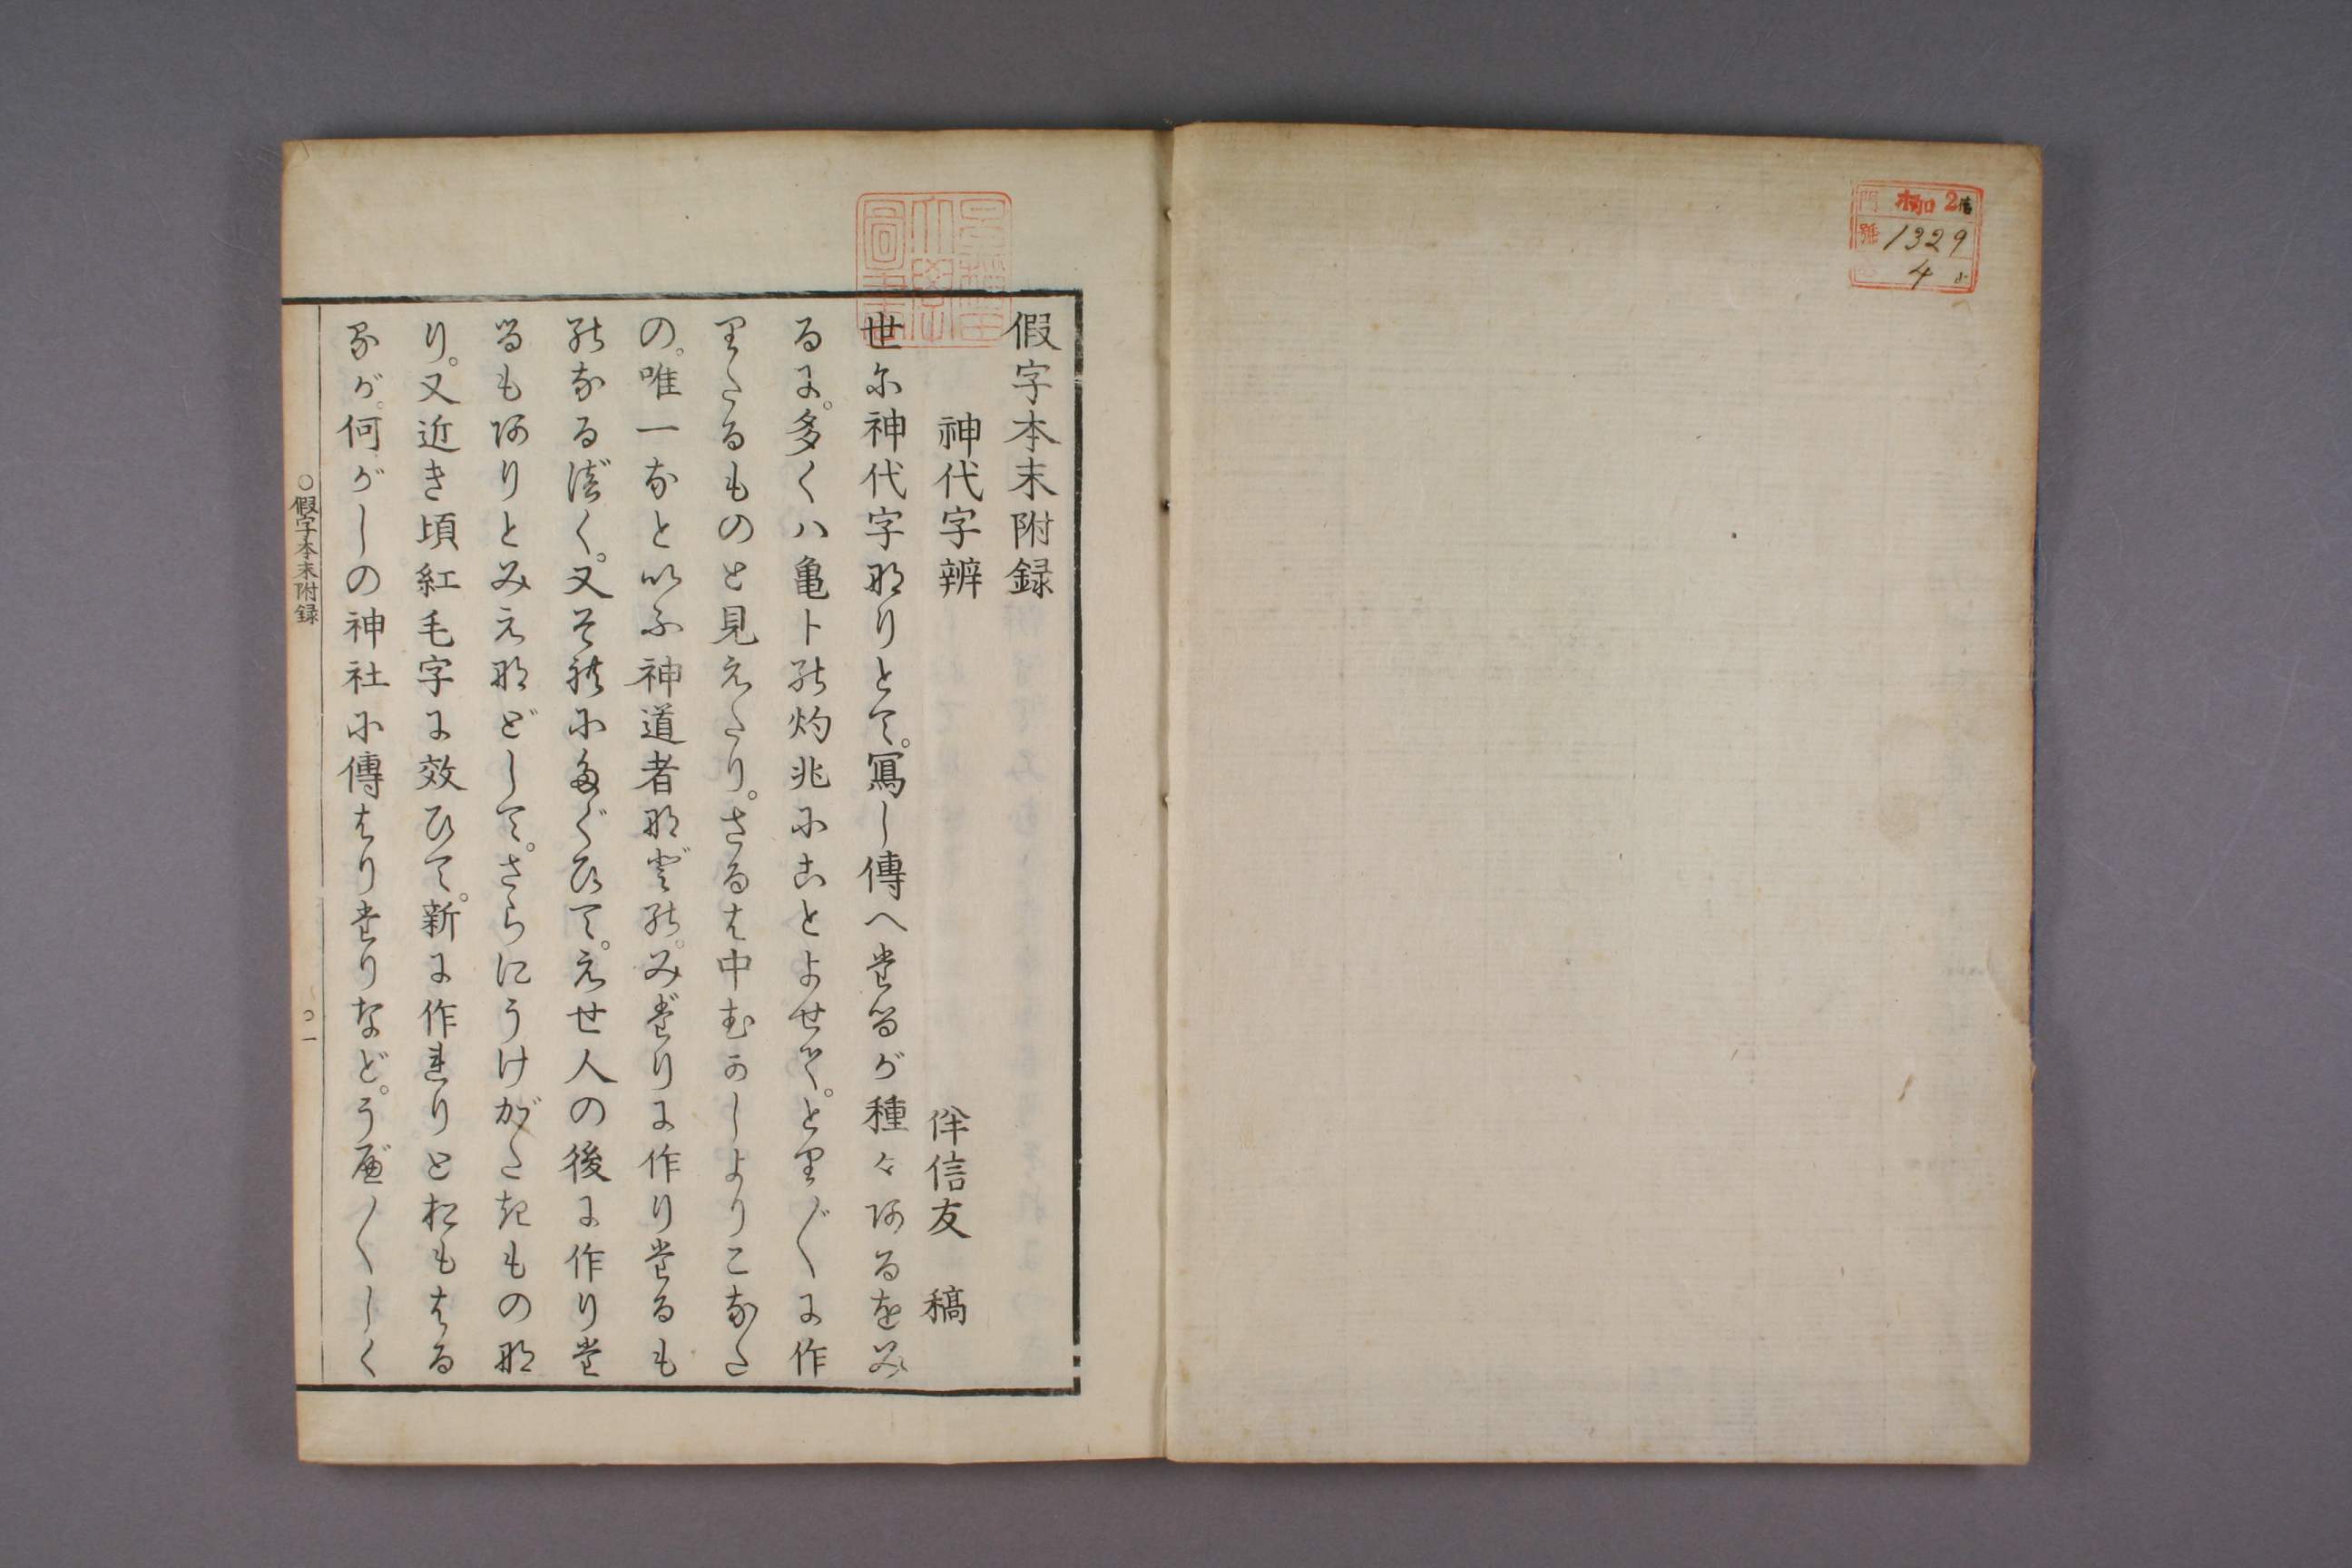 1329
4
假字本末附録
神代字辨
伴信友 稿
世に神代字なりとて。寫し傳へたるが種々あるをみ
るに。多くハ亀卜の灼兆にことよせて。とり〴〵に作
りたるものと見えたり。さるは中むかしよりこなた
の。唯一などいふ神道者などの。みだりに作りたるも
のなるべく。又それにたぐひて。えせ人の後に作りた
るもありとみえなどして。さらにうけがたきものな
り。又近き頃紅毛字に效ひて。新に作れりとおもはる
るが。何がしの神社に傳はりたりなど。うべ〳〵しく
○假字本末附録
一